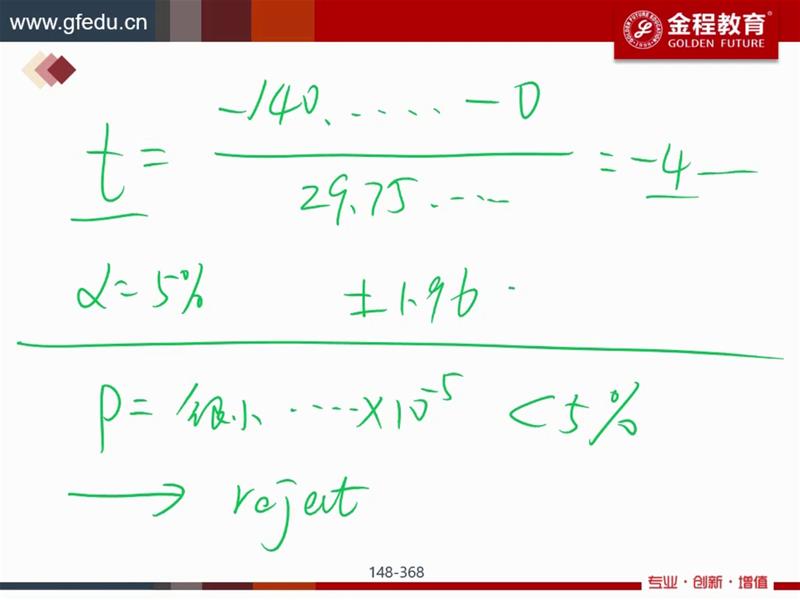 www.gfedu.cn
金程教育
GOLDEN FUTURE
t = -140. ..... - 0 / 29.75 ..... = -4 —
α = 5% ± 1.96 .
P = 很小 ..... × 10⁻⁵ < 5%
→ reject
148-368
专业·创新·增值